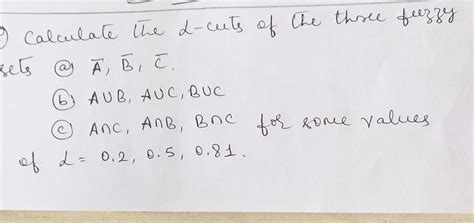 Calculate the α-cuts of the three fuzzy
sets ⓐ A̅, B̅, C̅.
ⓑ A∪B, A∪C, B∪C
ⓒ A∩C, A∩B, B∩C for some values
of α = 0.2, 0.5, 0.81.